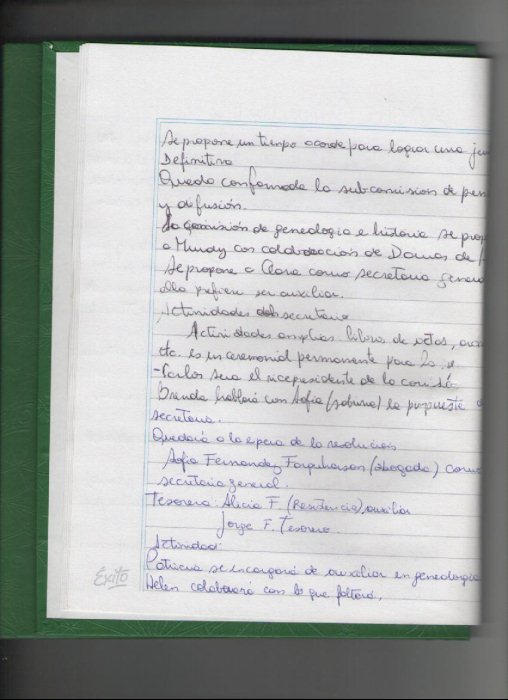 Se propone un tiempo acorde para lograr una
Definitiva
Queda conformada la subcomisión de
y difusión.
La comisión de genealogía e historia se
a Mundy con colaboración de Damos de
Se propone a Clara como secretaria general
ella prefiere ser auxiliar.
Actividades de secretaria
Actividades amplias libros de actas,
etc. es un ceremonial permanente para
-Carlos será el vicepresidente de la
Brenda hablará con Sofía (sobrina) la propuesta
secretaria.
Quedará a la espera de la resolución
Sofía Fernandez Farquharson (abogada) como
secretaria general.
Tesorera: Alicia F. (Residencia), auxiliar
Jorge F. Tesorero.
Actividad:
Patricia se encargará de auxiliar en genealogía
Helen colaborará con lo que faltará.
Éxito